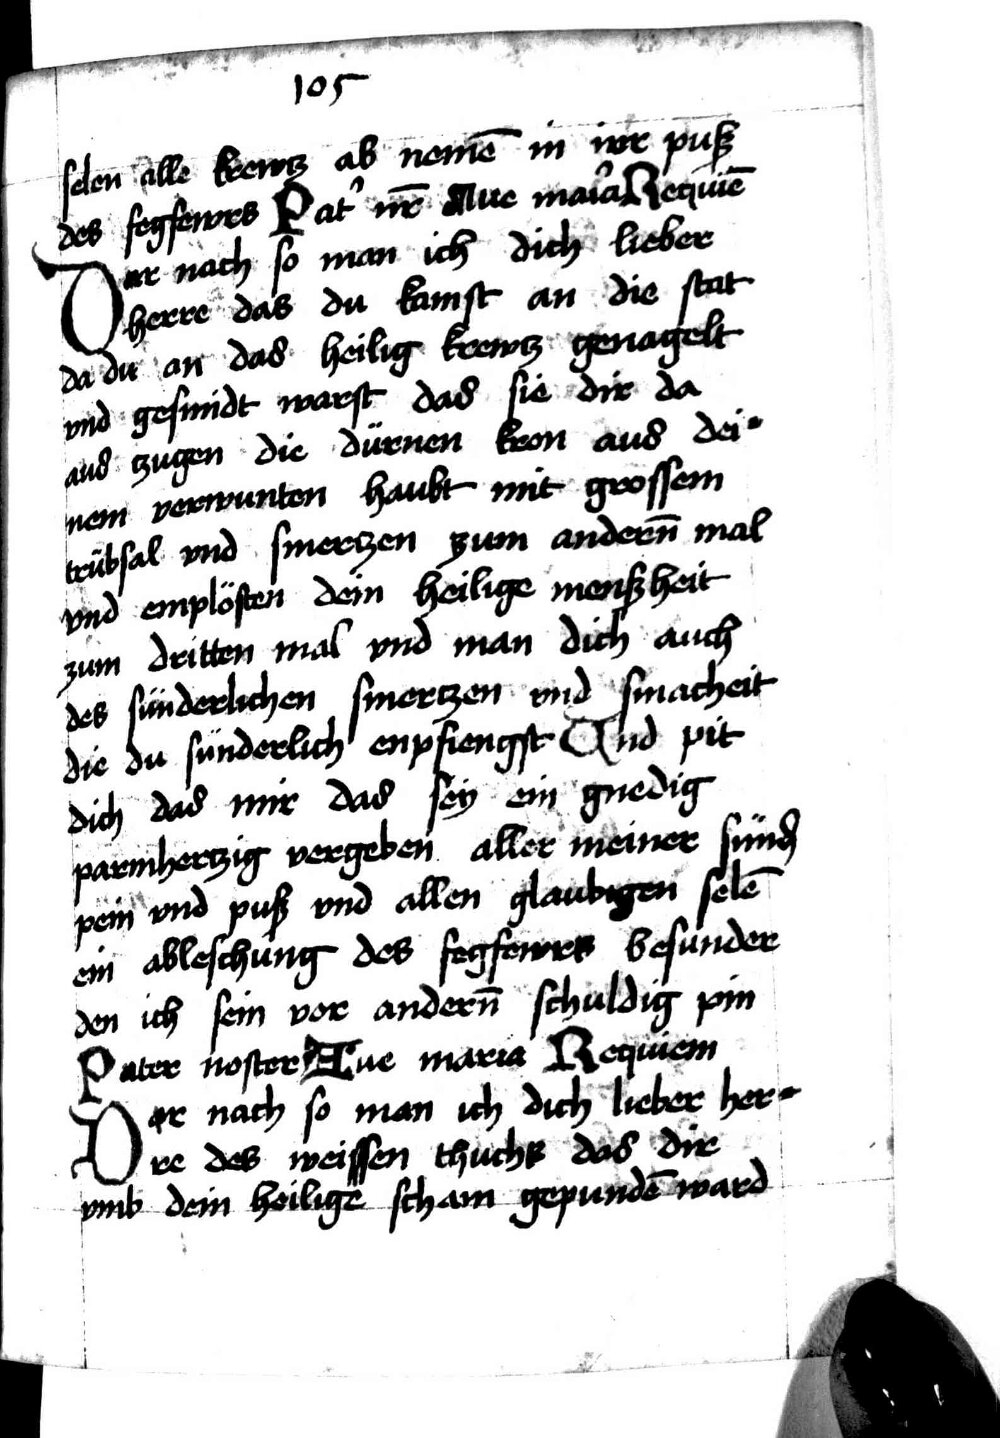 105
selen alle krewtz ab nemē in irer puß
des fegfewrs Pat' nr̄ Aue maria Requiē
Dar nach so man ich dich lieber
herre das du kamst an die stat
da du an das heilig krewtz genagelt
vnd gesmidt warst das sie dir da
aus tzugen die dürnen kron aus dei-
nem verwunten haubt mit grossem
trübsal vnd smertzen zum andern̄ mal
vnd emplösten dein heilige menßheit
zum dritten mal vnd man dich auch
des sünderlichen smertzen vnd smacheit
die du sünderlich enpfiengst Vnd pit
dich das mir das sey ein gnedig
parmhertzig vergeben aller meiner sünd
pein vnd puß vnd allen glaubigen selē
ein ableschung des fegfewrs besunder
den ich sein vor andern̄ schuldig pin
Pater noster Aue maria Requiem
Dar nach so man ich dich lieber her-
re des weissen thuchs das dir
vmb dein heilige scham gepundē ward